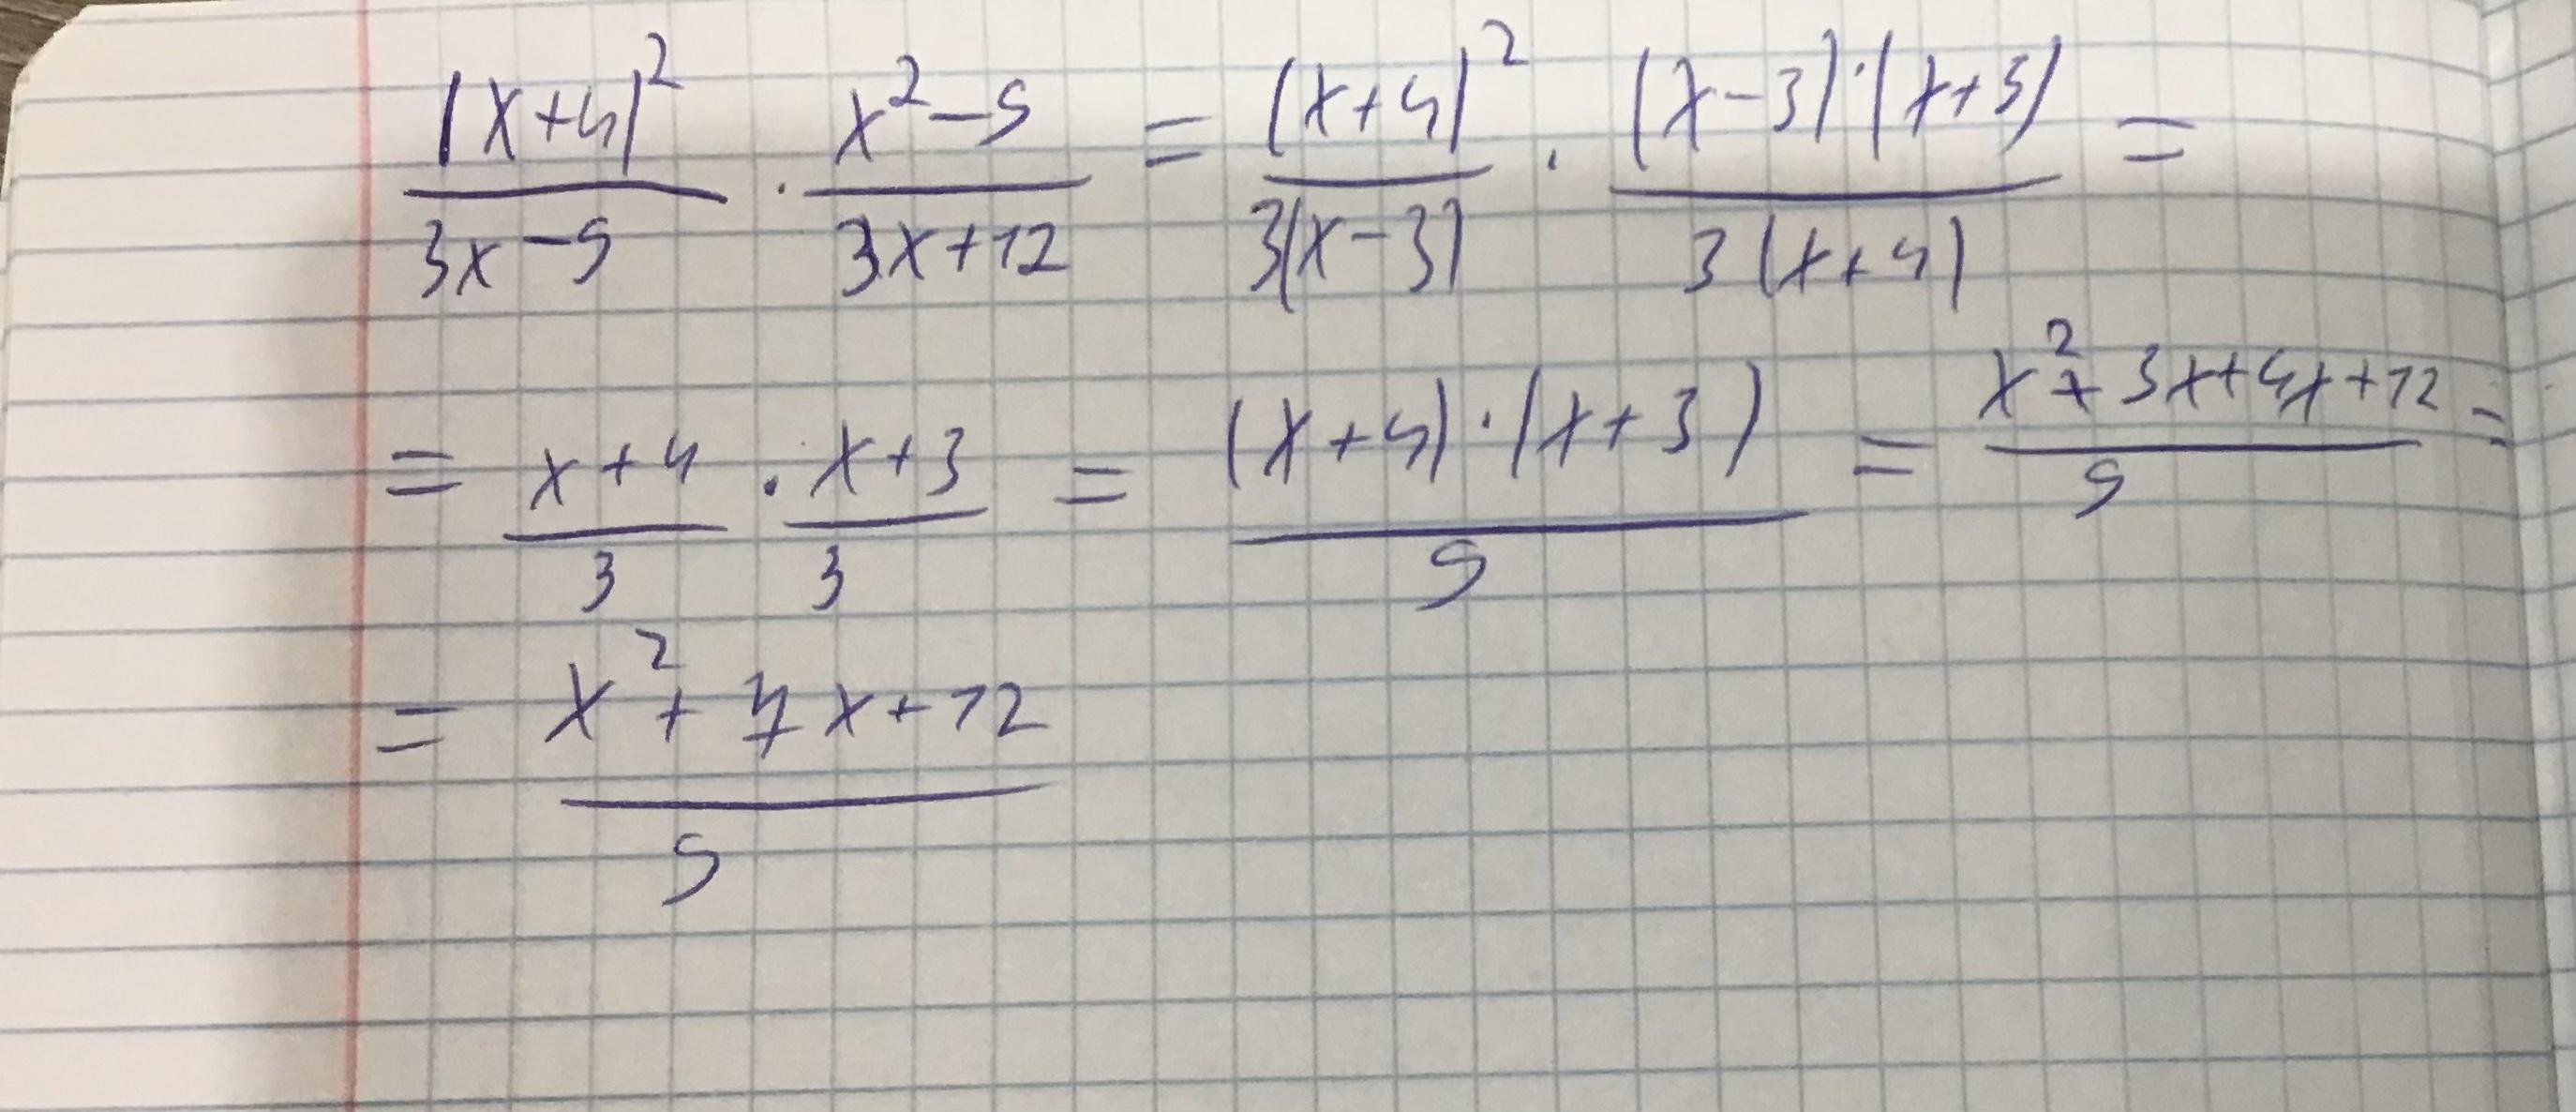 (x+4)²/(3x-9) · (x²-9)/(3x+12) = (x+4)²/(3(x-3)) · ((x-3)·(x+3))/(3(x+4)) =
= (x+4)/3 · (x+3)/3 = ((x+4)·(x+3))/9 = (x²+3x+4x+12)/9 =
= (x²+7x+12)/9